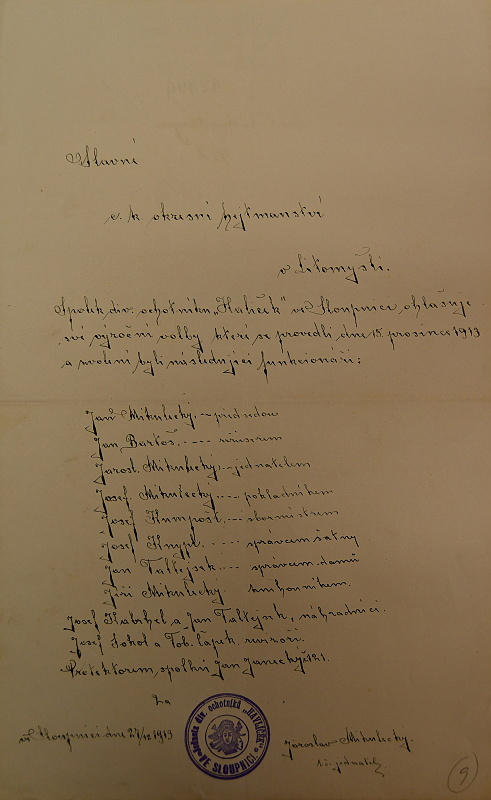 Slavné
c. k. okresní hejtmanství
v Litomyšli.
Spolek div. ochotníků „Havlíček" ve Sloupnici, ohlašuje
své výroční volby které se provedli dne 15. prosince 1913
a zvoleni byli následující funkcionáři:
Jan Mikulecký --- předsedou
Jan Bartoš. ---- režisérem
Jarosl. Mikulecký -- jednatelem
Josef. Mikulecký ---- pokladníkem
Josef Kumpošt. --- sbormistrem
Josef Knypl. ---- správcem šatny
Jan Taltejsek --- správcem. domů
Jiří Mikulecký. knihovníkem.
Josef a Jan Taltejsek, náhradníci.
Josef Sokol a Tob. Čapek. revizoři.
Protektorem, spolku Jan Janecký č 121.
Za
ve Sloupnici dne 27/12 1913
Jednota div. ochotníků „HAVLÍČEK"
VE SLOUPNICI
Jaroslav Mikulecký.
t. č. jednatel
9